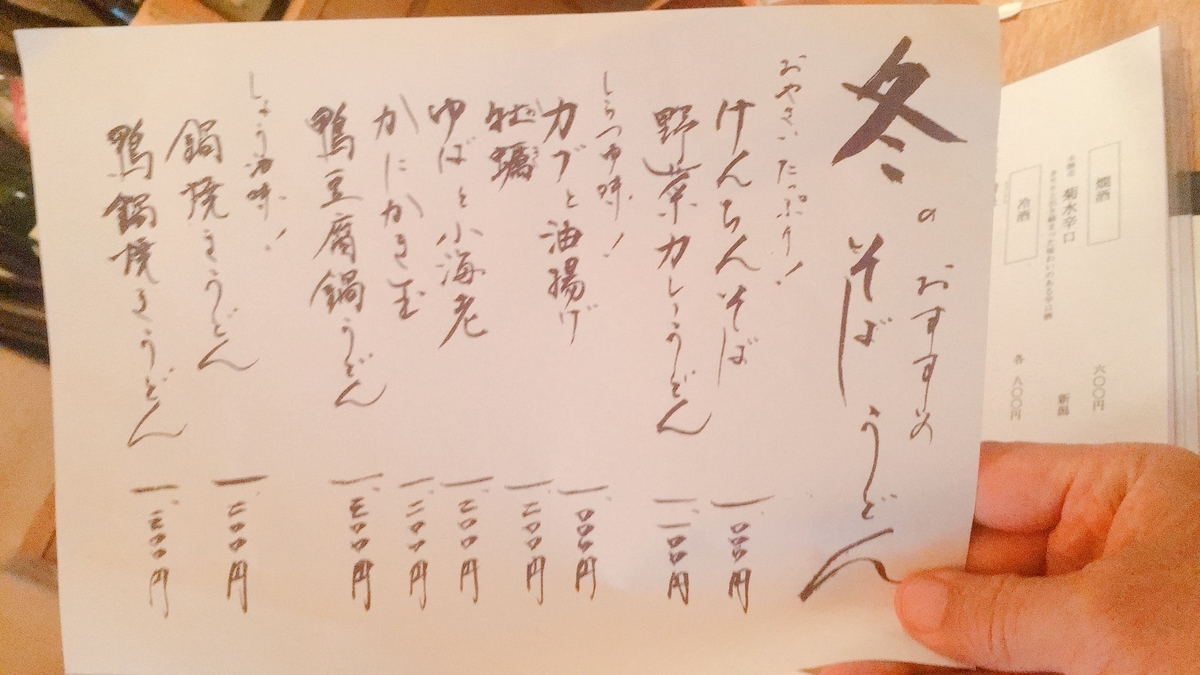 燗酒 六〇〇円
菊水辛口 新潟
冷酒 各 八〇〇円
冬のおすすめ
そばうどん
おやさいたっぷり!
けんちんそば 一、〇〇〇円
野菜カレーうどん 一、一〇〇円
しろつゆ味!
カブと油揚げ 一、〇〇〇円
牡蠣 一、二〇〇円
ゆばと小海老 一、二〇〇円
かにかき玉 一、二〇〇円
鴨豆腐鍋うどん 一、三〇〇円
しょう油味!
鍋焼きうどん 一、二〇〇円
鴨鍋焼きうどん 一、三〇〇円